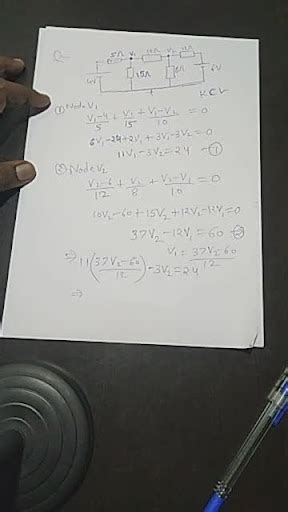 Q-
5Ω V1 10Ω V2 12Ω
4V 15Ω 8Ω 6V
KCL
① Node V1
V1-4/5 + V1/15 + V1-V2/10 = 0
6V1-24+2V1+3V1-3V2=0
11V1-3V2=24 -①
② Node V2
V2-6/12 + V2/8 + V2-V1/10 = 0
10V2-60+15V2+12V2-12V1=0
37V2-12V1=60 -②
V1 = 37V2-60/12
⇒ 11(37V2-60/12) -3V2=24
⇒